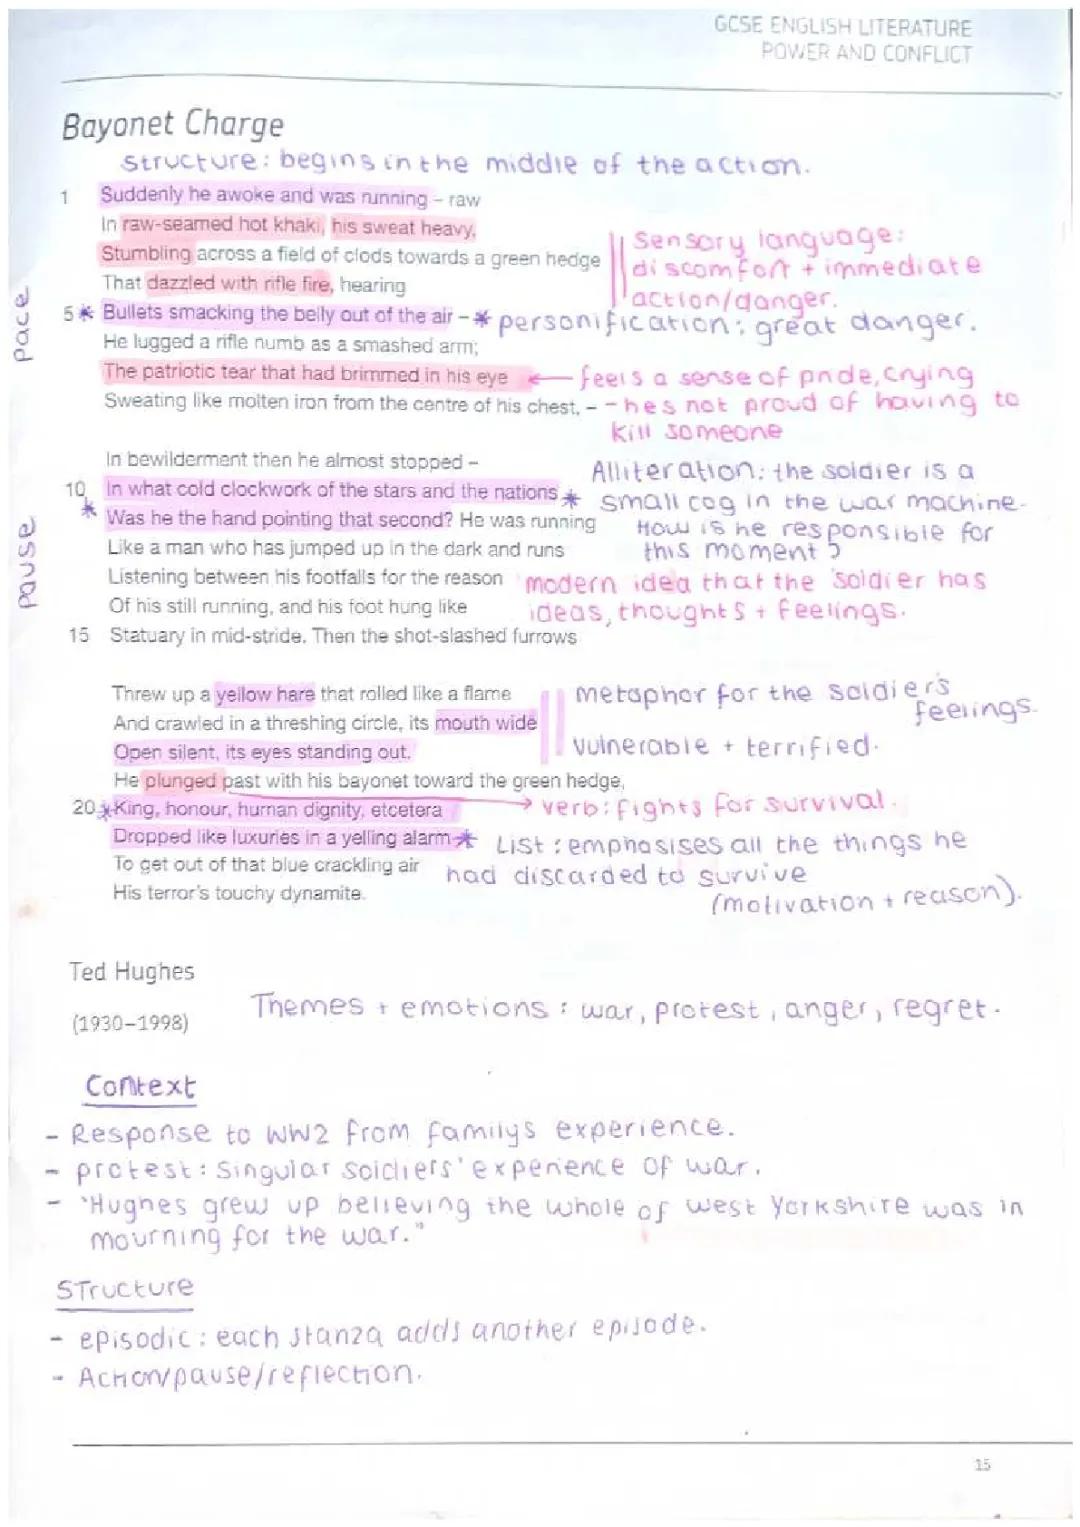 GCSE ENGLISH LITERATURE
POWER AND CONFLICT
Bayonet Charge
Structure: begins in the middle of the action.
1 Suddenly he awoke and was running – raw
In raw-seamed hot khaki, his sweat heavy,
Stumbling across a field of clods towards a green hedge
That dazzled with rifle fire, hearing
Sensory language:
discomfort + immediate
action/danger.
pace
5 * Bullets smacking the belly out of the air – * personification: great danger.
He lugged a rifle numb as a smashed arm;
The patriotic tear that had brimmed in his eye ← feels a sense of pride, crying
Sweating like molten iron from the centre of his chest, – - hes not proud of having to
kill someone
In bewilderment then he almost stopped –
10 In what cold clockwork of the stars and the nations *
* Was he the hand pointing that second? He was running
Like a man who has jumped up in the dark and runs
Alliteration: the soldier is a
small cog in the war machine.
How is he responsible for
this moment?
pause
Listening between his footfalls for the reason
Of his still running, and his foot hung like
modern idea that the soldier has
ideas, thoughts + feelings.
15 Statuary in mid-stride. Then the shot-slashed furrows
Threw up a yellow hare that rolled like a flame
And crawled in a threshing circle, its mouth wide
Open silent, its eyes standing out.
metaphor for the soldier's
feelings.
vulnerable + terrified.
He plunged past with his bayonet toward the green hedge,
20 * King, honour, human dignity, etcetera → verb: fights for survival.
Dropped like luxuries in a yelling alarm * List: emphasises all the things he
To get out of that blue crackling air had discarded to survive
His terror's touchy dynamite. (motivation + reason).
Ted Hughes
(1930–1998)
Themes + emotions: war, protest, anger, regret.
Context
- Response to WW2 from familys experience.
- protest: Singular soldiers' experience of war.
- "Hughes grew up believing the whole of west Yorkshire was in
mourning for the war."
Structure
- episodic: each stanza adds another episode.
- Action/pause/reflection.
15